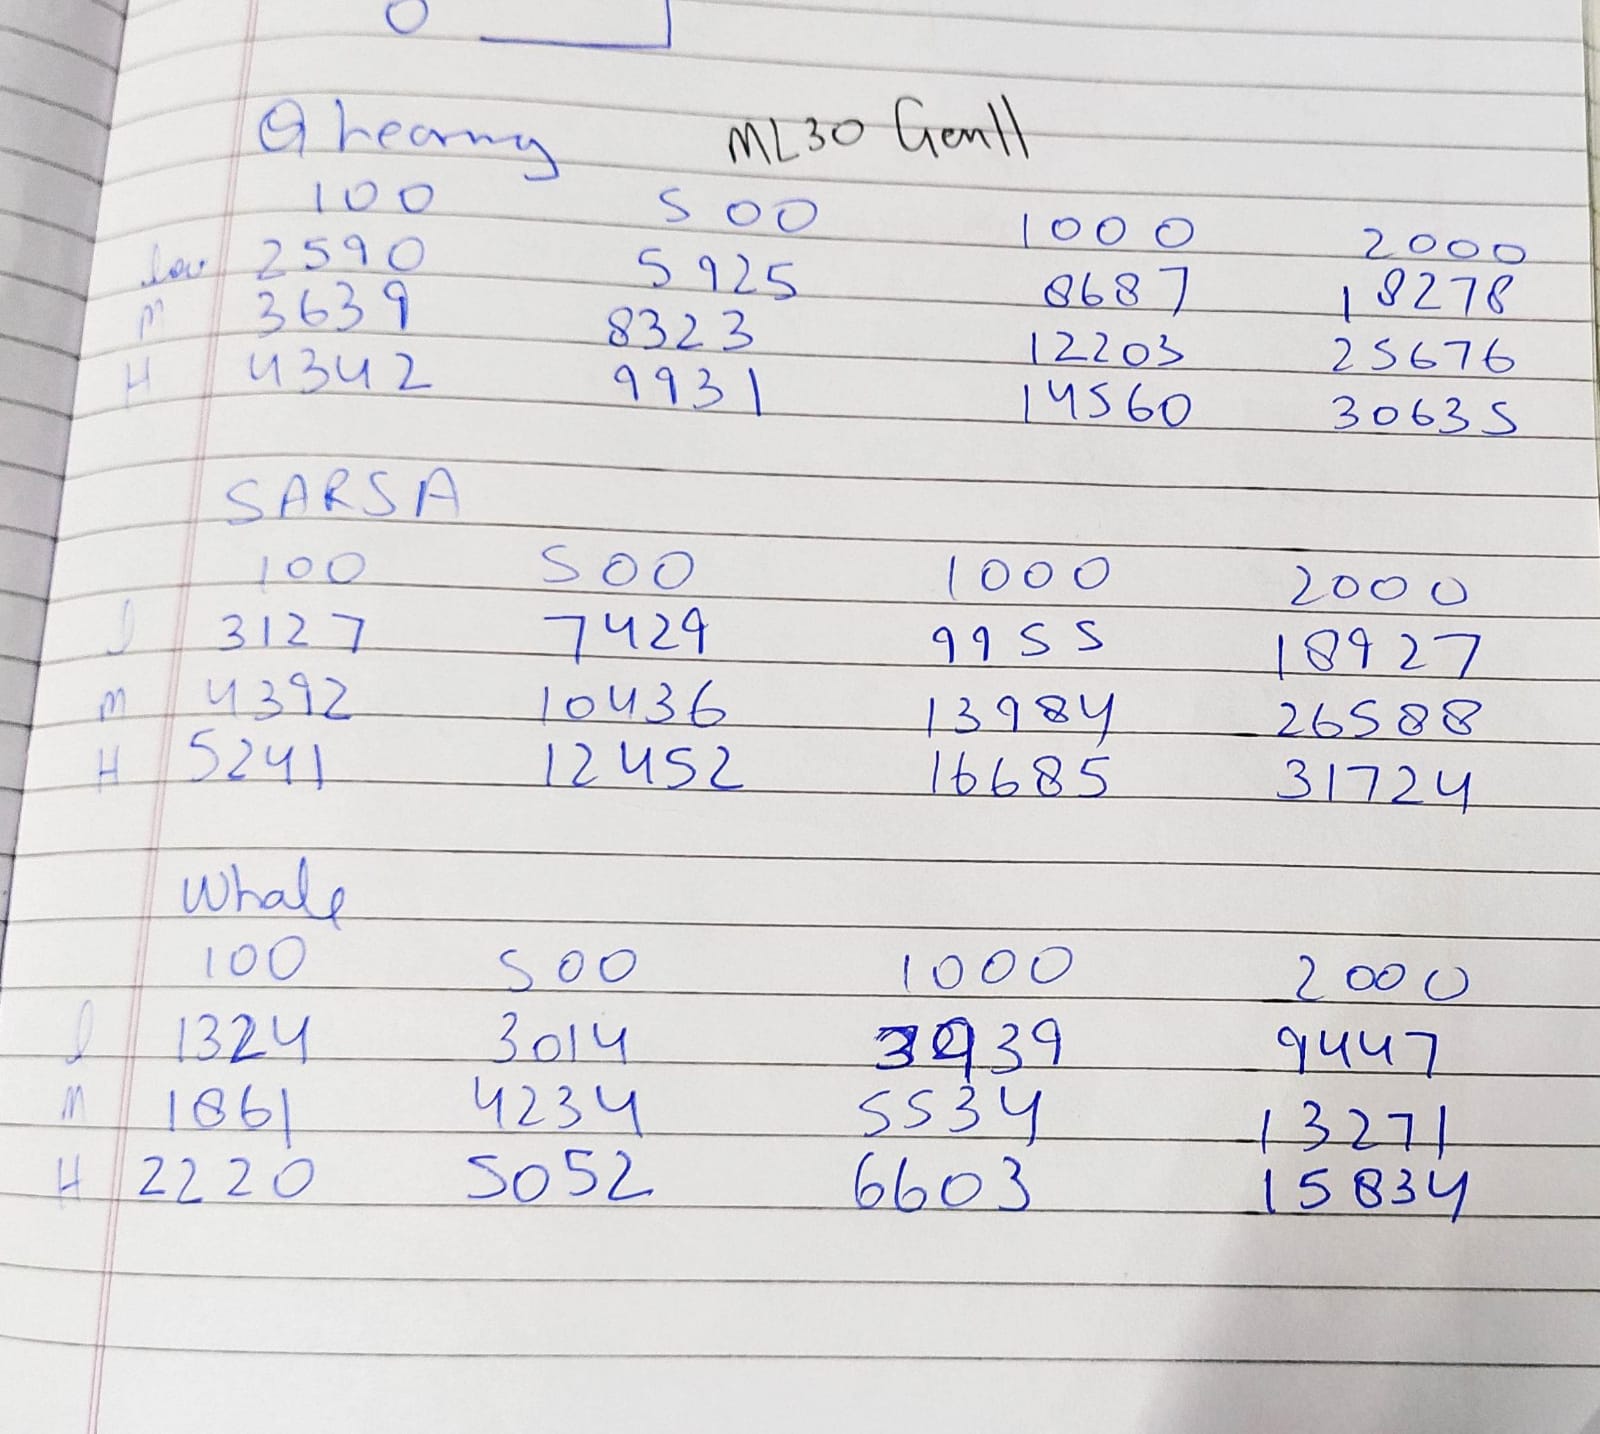 Q Learning ML30 Gen11
100 500 1000 2000
low 2590 5925 8687 18278
M 3639 8323 12203 25676
H 4342 9931 14560 30635
SARSA
100 500 1000 2000
l 3127 7429 9955 18927
m 4392 10436 13984 26588
H 5241 12452 16685 31724
Whale
100 500 1000 2000
l 1324 3014 3939 9447
M 1861 4234 5534 13271
H 2220 5052 6603 15834